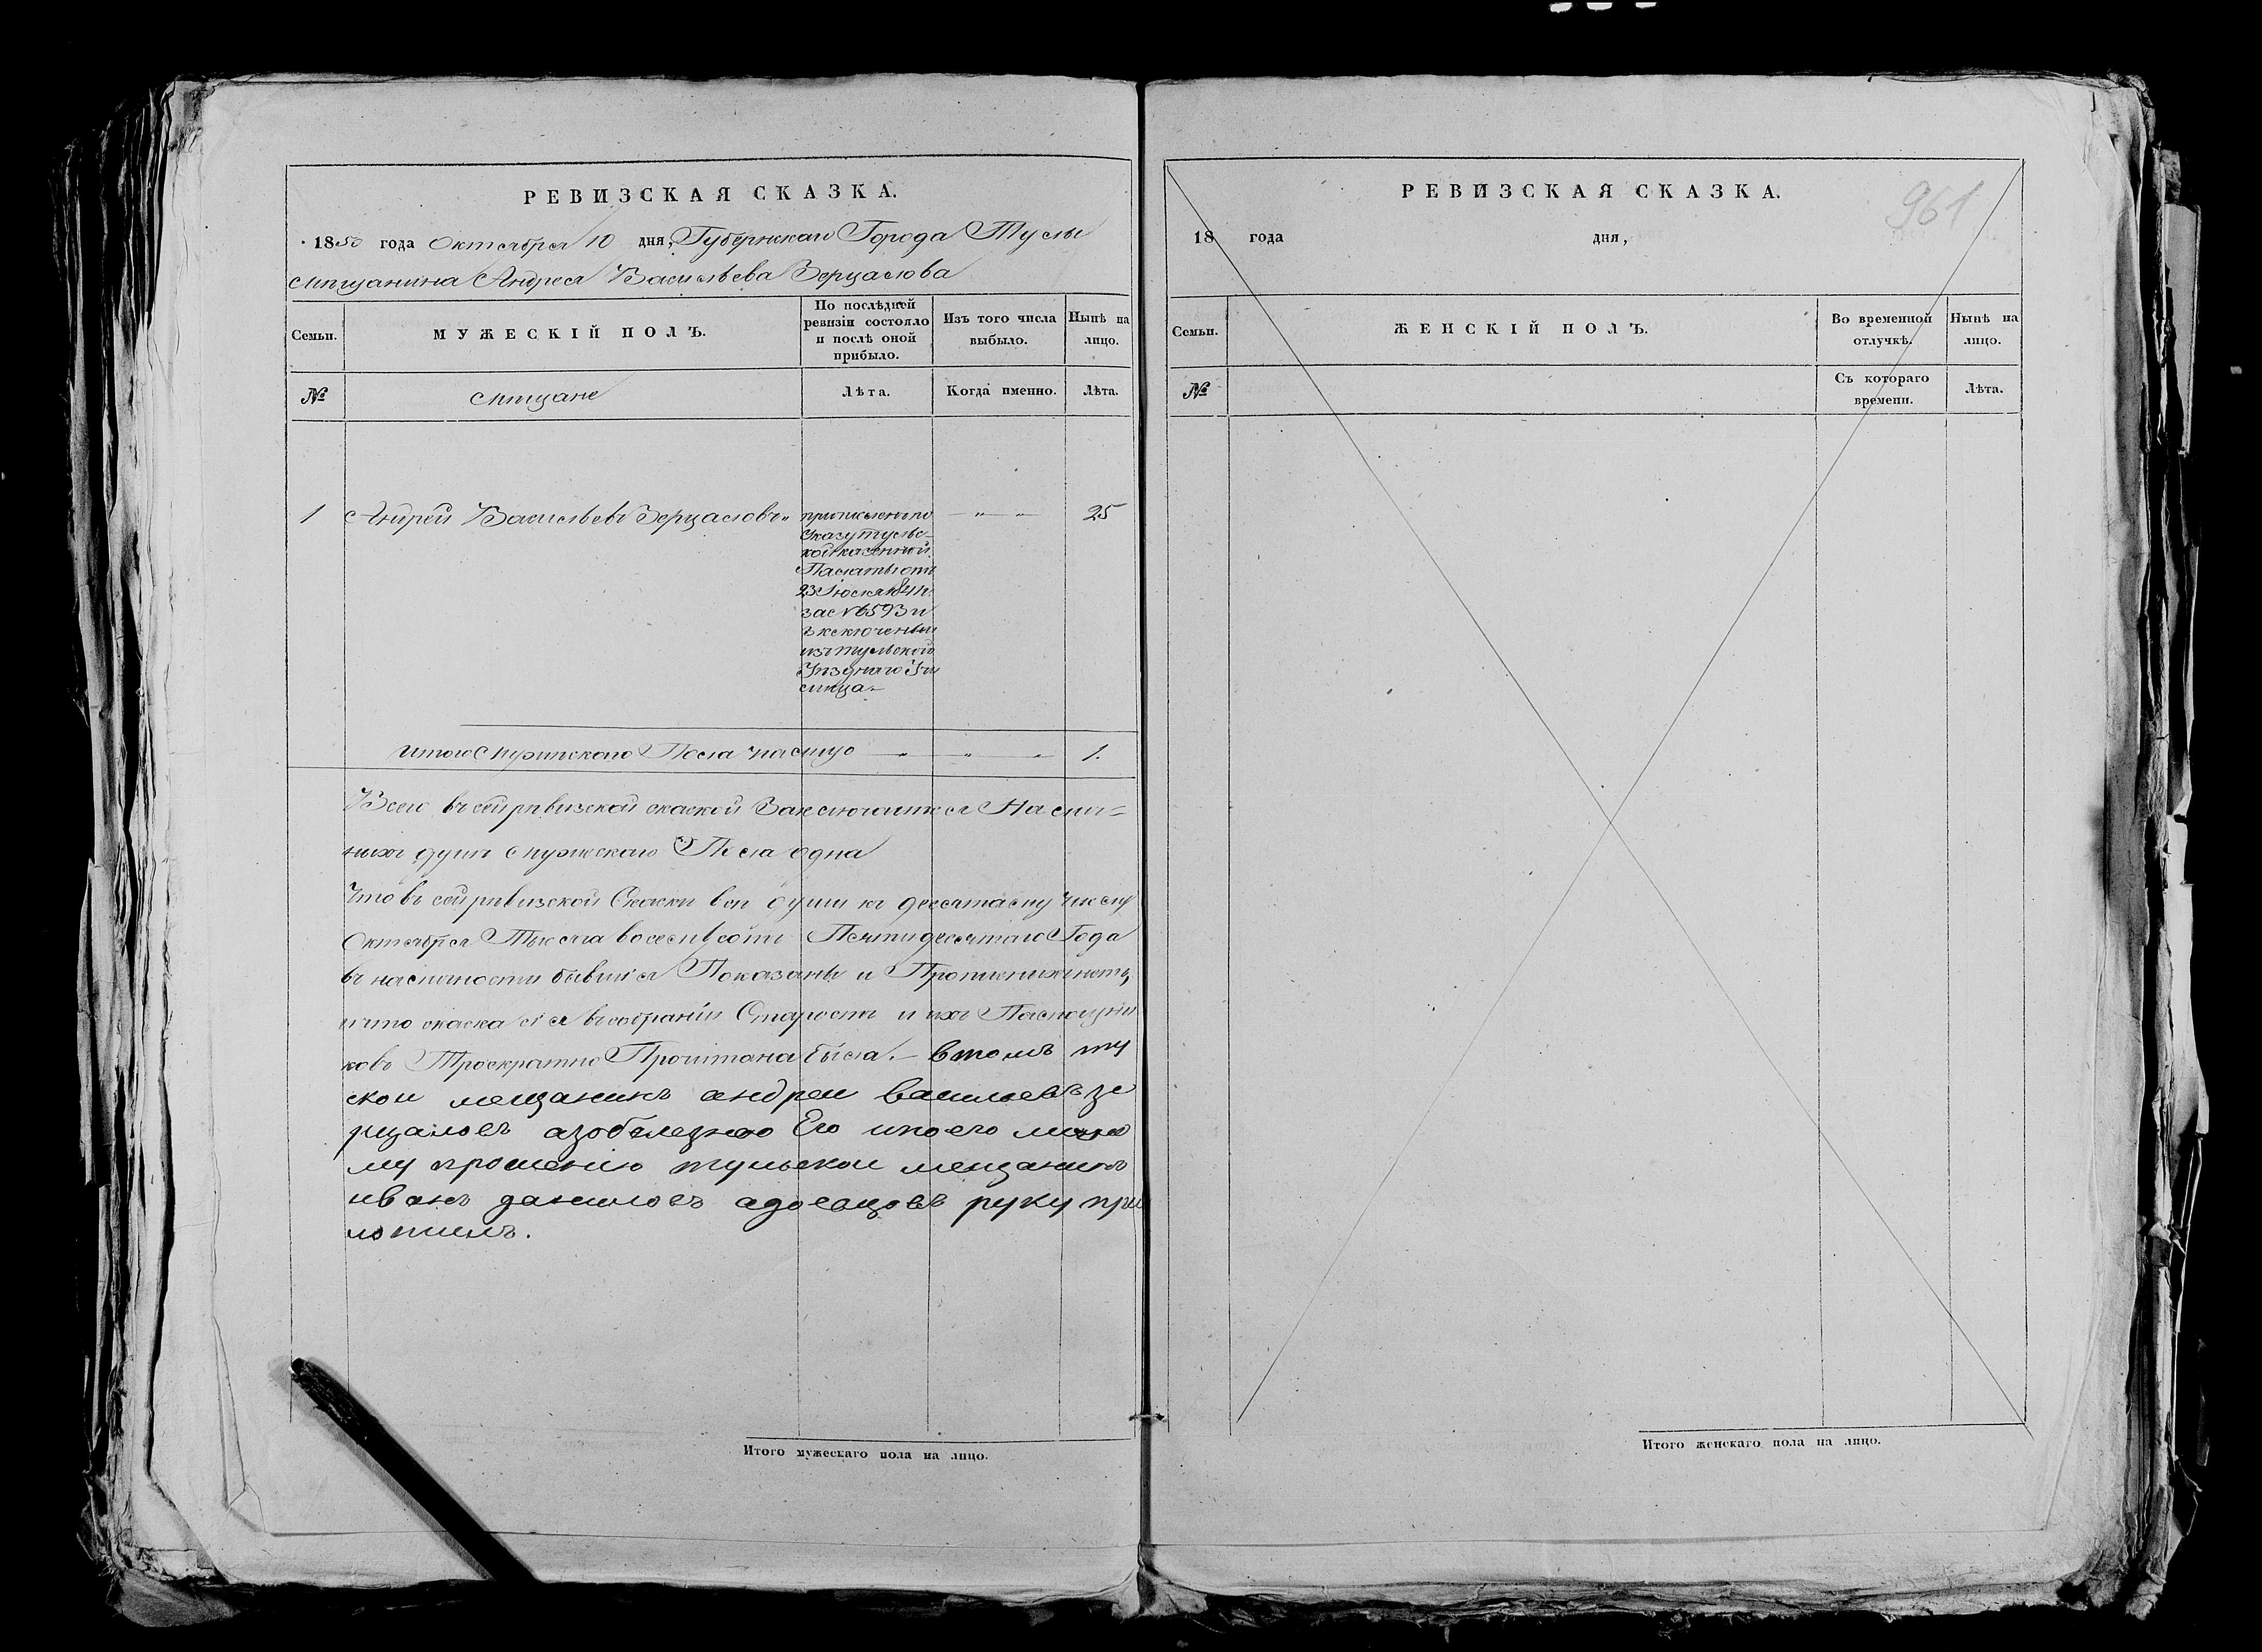 РЕВИЗСКАЯ СКАЗКА.
1850 года Октября 10 дня, Губернскаго Города Тулы
мещанина Андрея Васильева Зерцалова
Семьи.
МУЖЕСКІЙ ПОЛЪ.
По послѣдней ревизіи состояло и послѣ оной прибыло.
Изъ того числа выбыло.
Нынѣ на лицо.
№
мещане
Лѣта.
Когда именно.
Лѣта.
1 Андрей Васильевъ Зерцаловъ
причисленъ по
Указу тульс-
кой казенной
Палаты отъ
23 Іюля
за № 6593 и
изъ тульскаго
Уезднаго Учи
лища
25
итого мужескаго Пола налицо 1.
Всего въ сей ревизской скаской Заключается На лич-
ныхъ душъ мужескаго Пола одна
Что въ сей ревизской Скаски все души къ десятому числу
Октября Тысяча восемьсотъ Пятидесятаго Года
въ наличности бывшія Показаны и Прописныхъ нетъ,
и что скаска сія въ собраніи Старостъ и ихъ Пасмощни
ковъ Троекратно Прочитана была. – в томъ ту
скои мещанинъ андреи васильевъ зе
рцаловъ азобелезнею Его ипоего лично
му прошению тульскои мещанинъ
иванъ даниловъ адоевцовъ руку при
ложилъ.
Итого мужескаго пола на лицо.
РЕВИЗСКАЯ СКАЗКА.
961
18 года дня,
Семьи.
ЖЕНСКІЙ ПОЛЪ.
Во временной отлучкѣ.
Нынѣ на лицо.
№
Съ котораго времени.
Лѣта.
Итого женскаго пола на лицо.